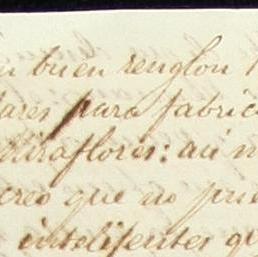 un buen renglon
lares para fabric
Miraflores: aun
creo que no pue
intelijentes q